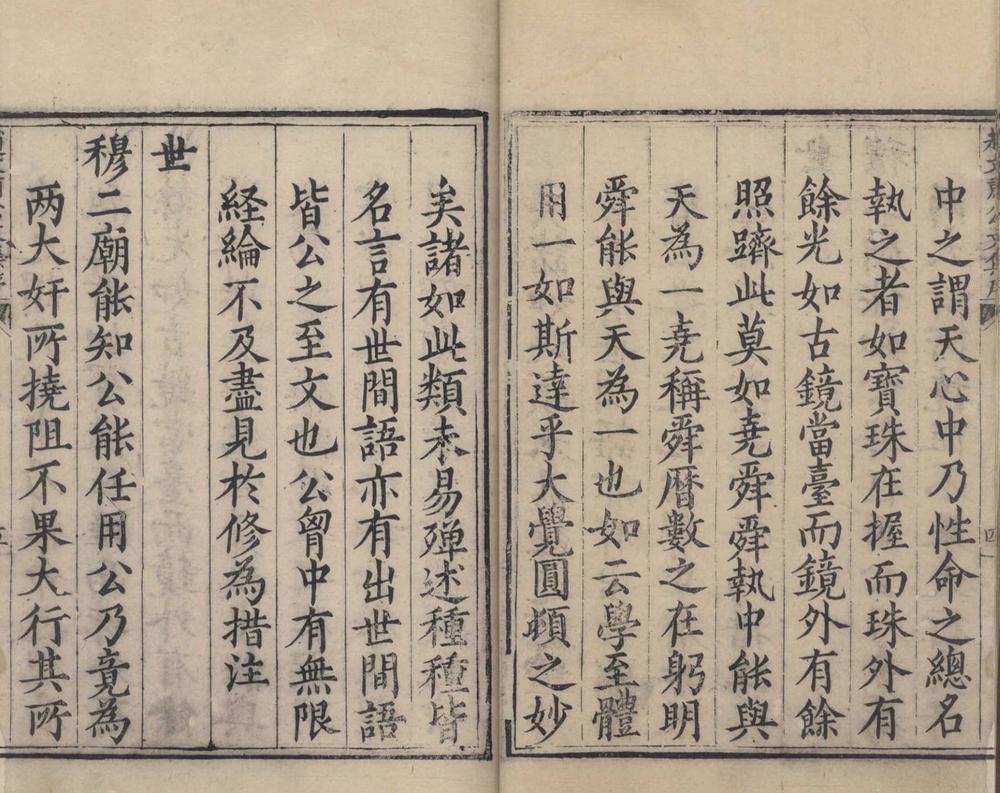 中之謂天心中乃性命之總名
執之者如寶珠在握而珠外有
餘光如古鏡當臺而鏡外有餘
照躋此莫如堯舜舜執中能與
天為一堯稱舜曆數之在躬明
舜能與天為一也如云學至體
用一如斯達乎大覺圓頓之妙
四
矣諸如此類未易殫述種種皆
名言有世間語亦有出世間語
皆公之至文也公胷中有無限
経綸不及盡見於修為措注
世
穆二廟能知公能任用公乃竟為
两大奸所撓阻不果大行其所